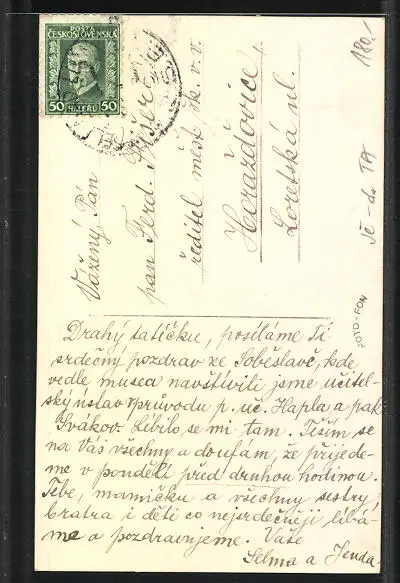 POŠTA
ČESKOSLOVENSKÁ
50 HALÉŘŮ 50
180.-
Vážený Pán
pan Ferd. Fišera
ředitel měšť. šk. v. v.
Horažďovice
Loretská ul.
FOTO-FON
Drahý tatíčku, posíláme Ti
srdečný pozdrav ze Soběslavě, kde
vedle musea navštívili jsme učitel-
ský ústav v průvodu p. uč. Hapla a pak
Svákov. Líbilo se mi tam. Těším se
na Vás všechny a doufám, že přijede-
me v pondělí před druhou hodinou.
Tebe, maminku a všechny sestry,
bratra i děti co nejsrdečněji líbá-
me a pozdravujeme. Vaše
Selma a Jenda.